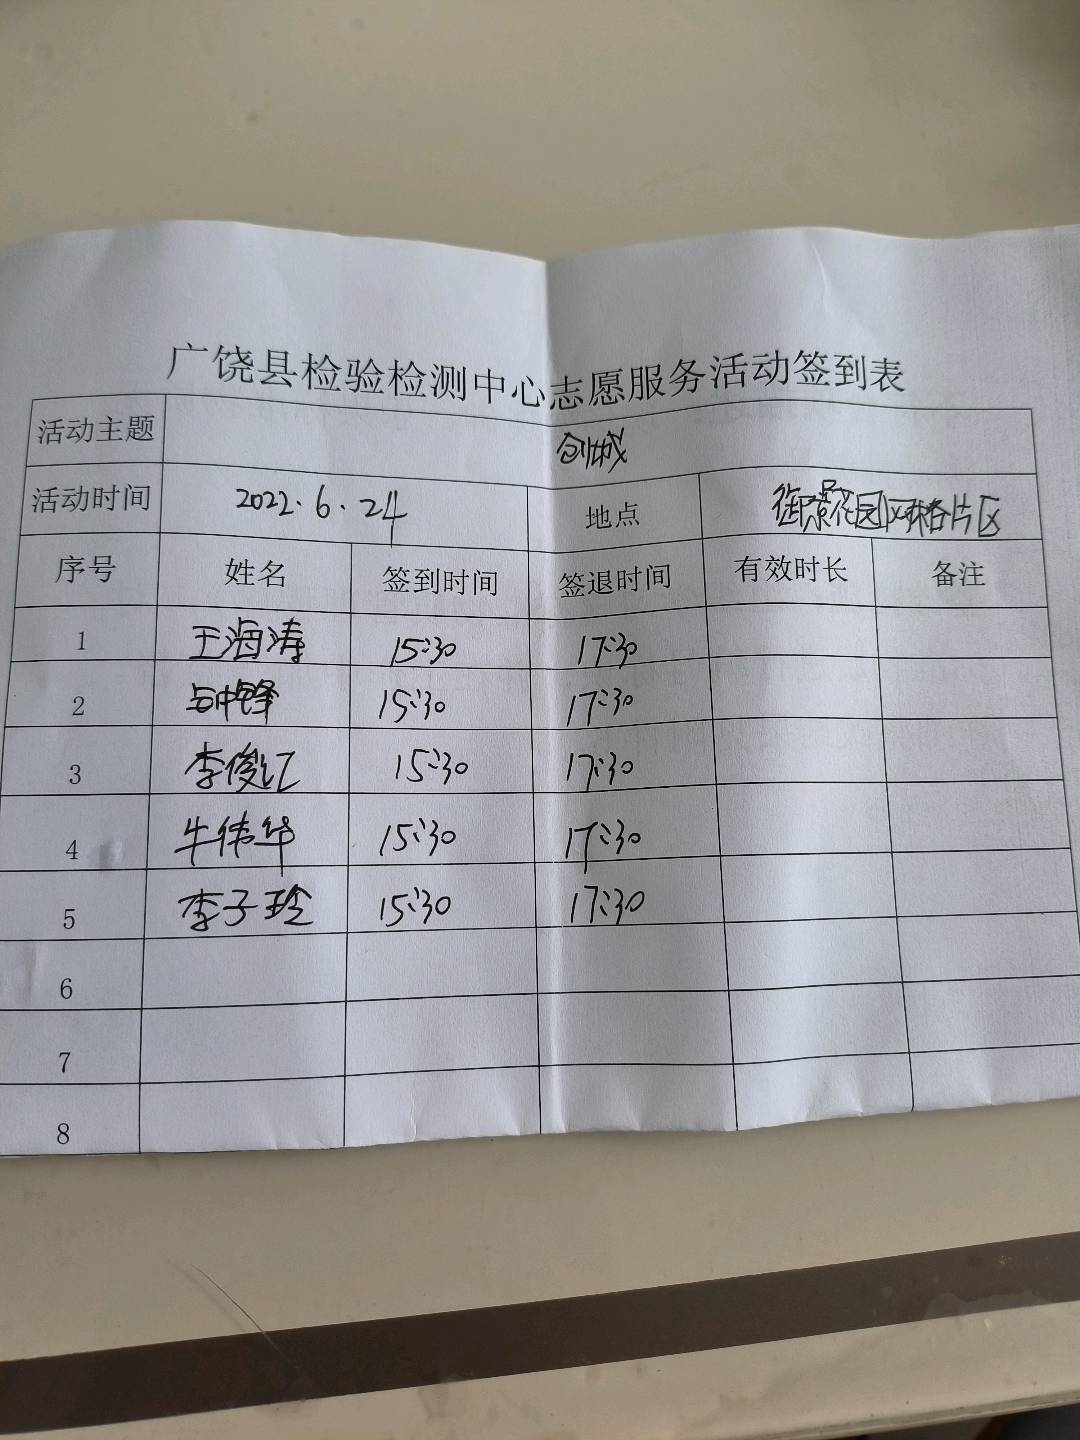 广饶县检验检测中心志愿服务活动签到表
活动主题 创城
活动时间 2022.6.24 地点 御景花园网格片区
序号 姓名 签到时间 签退时间 有效时长 备注
1 王海涛 15:30 17:30
2 15:30 17:30
3 李俊江 15:30 17:30
4 牛伟华 15:30 17:30
5 李子玲 15:30 17:30
6
7
8